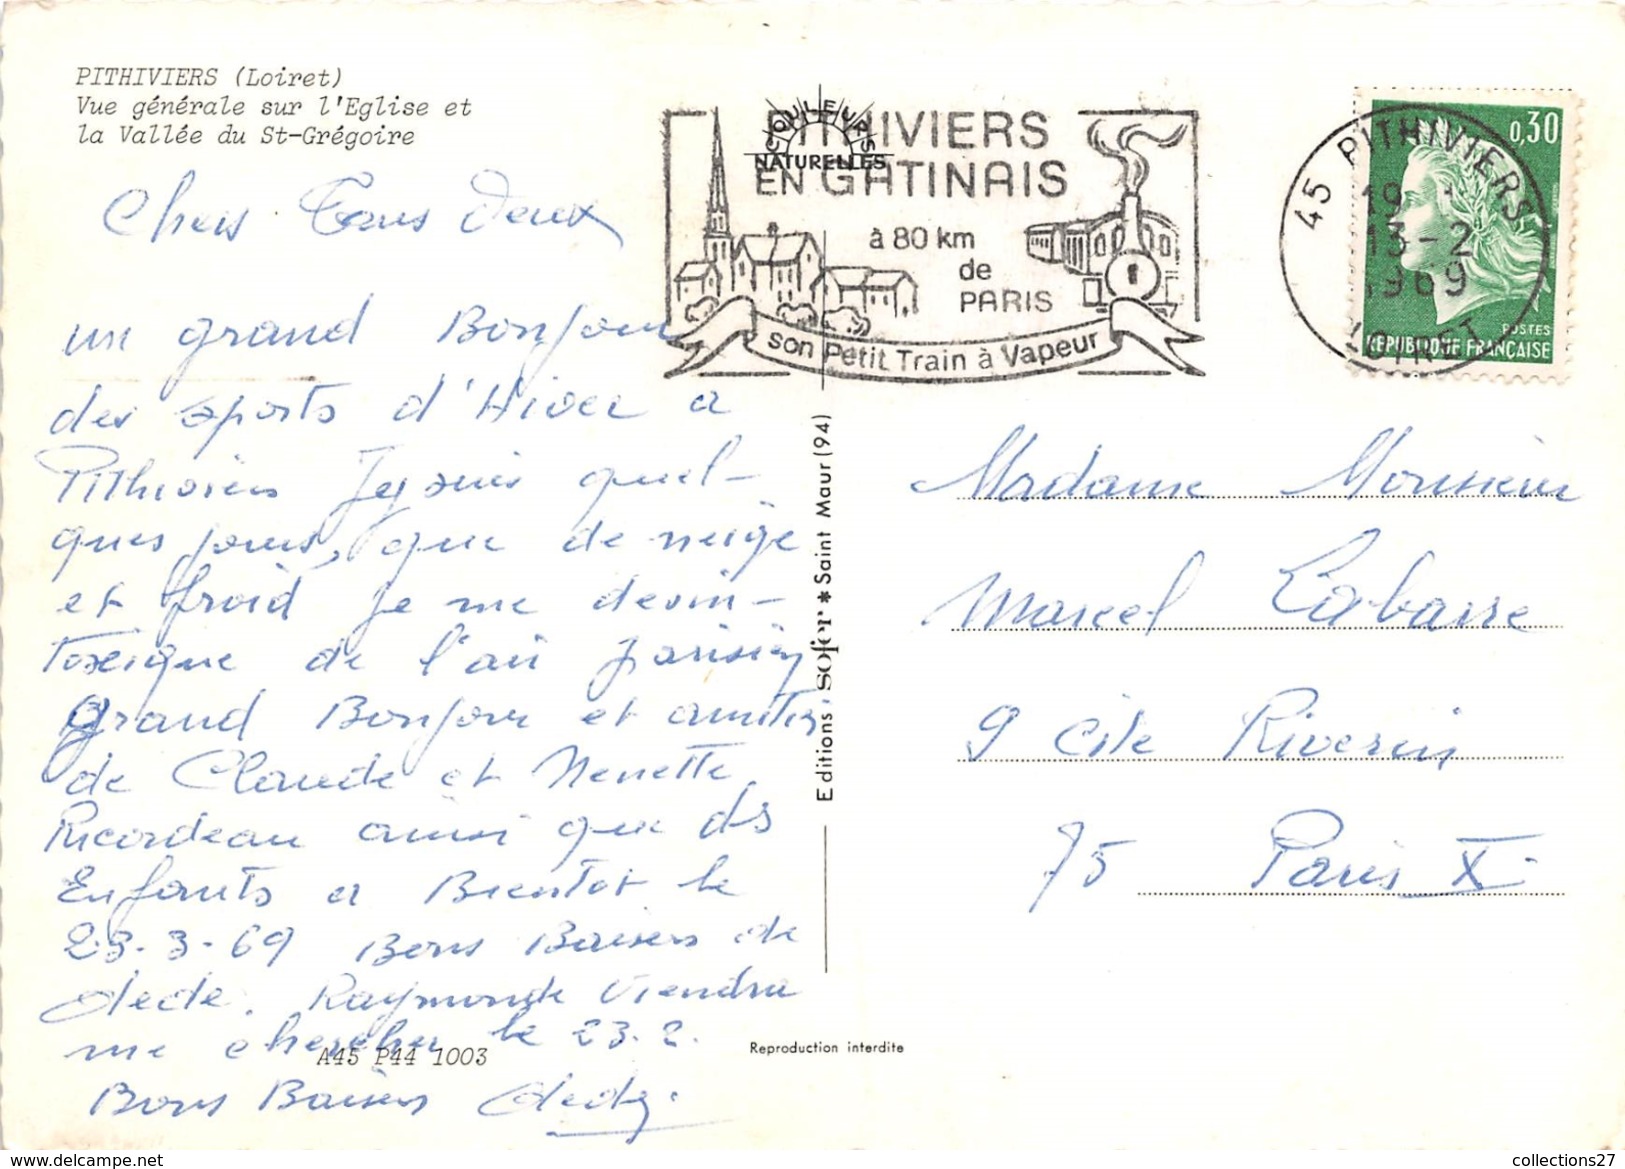 PITHIVIERS (Loiret)
Vue générale sur l'Eglise et
la Vallée du St-Grégoire
Chers Tous Deux
un grand Bonjour
des sports d'Hiver a
Pithiviers Jy suis quel-
ques jours, que de neige
et froid je me desin-
toxique de l'air parisien
Grand Bonjour et amitiés
de Claude et Nenette
Ricordeau ainsi que des
Enfants et Bientot le
23-3-69 Bons Baisers de
dede. Raymonde viendra
me chercher le 23.2.
Bons Baisers dede.
A45 P44 1003
COULEURS
NATURELLES
PITHIVIERS
EN GATINAIS
à 80 km
de
PARIS
son Petit Train à Vapeur
45 PITHIVIERS
19
13-2
1969
LOIRET
0,30
POSTES
REPUBLIQUE FRANÇAISE
Editions sofer * Saint Maur (94)
Reproduction interdite
Madame Monsieur
Marcel Labarre
9 cite Riverin
75 Paris X
collections27